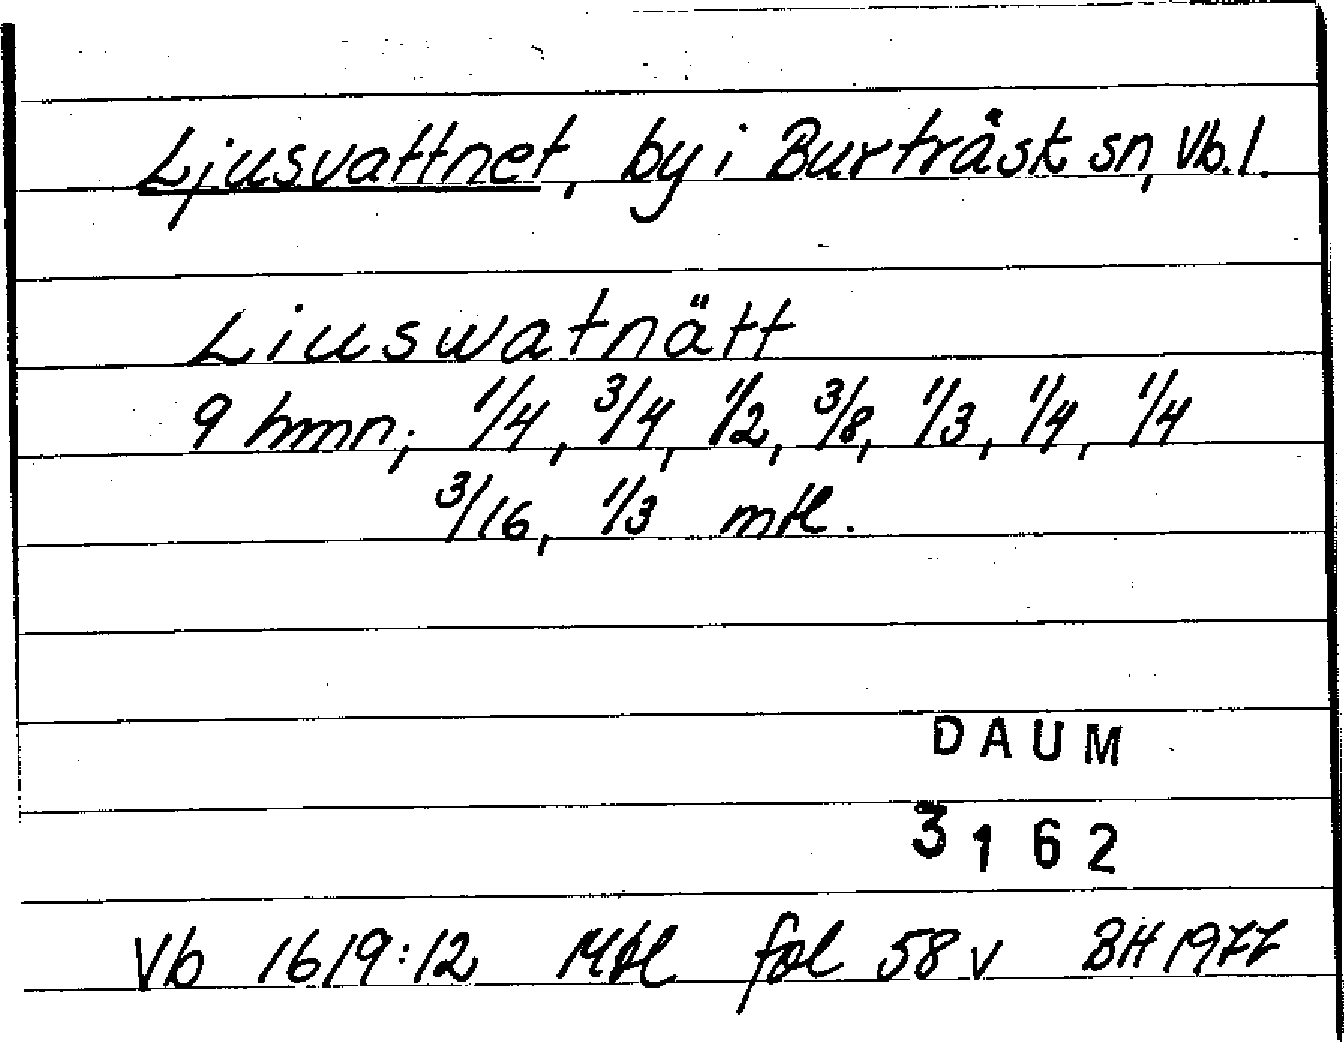 Ljusvattnet, by i Burträsk sn, Vb. l.
Liuswatnätt
9 hmn; 1/4, 3/4, 1/2, 3/8, 1/3, 1/4, 1/4
3/16, 1/3 mtl.
DAUM
3162
Vb 1619:12 Mtl fol 58 v BH 1977